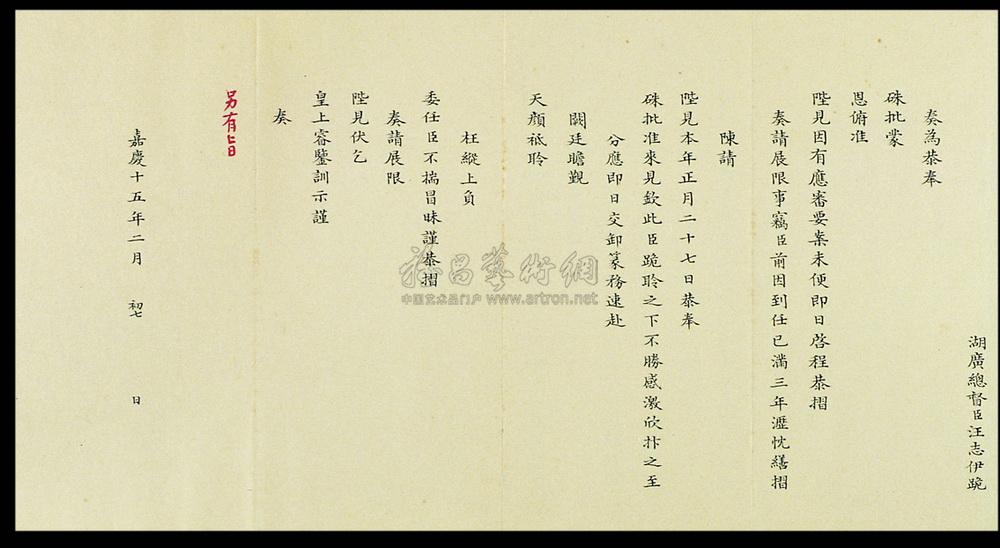 湖廣總督臣汪志伊跪
奏為恭奉
硃批蒙
恩俯准
陛見因有應審要案未便即日啓程恭摺
奏請展限事竊臣前因到任已滿三年瀝忱繕摺
陳請
陛見本年正月二十七日恭奉
硃批准來見欽此臣跪聆之下不勝感激欣抃之至
分應即日交卸篆務速赴
闕廷瞻覲
天顏祗聆
枉縱上負
委任臣不揣冒昧謹恭摺
奏請展限
陛見伏乞
皇上睿鑒訓示謹
奏
另有旨
嘉慶十五年二月 初七 日
雅昌藝術網
中国艺术品门户 www.artron.net